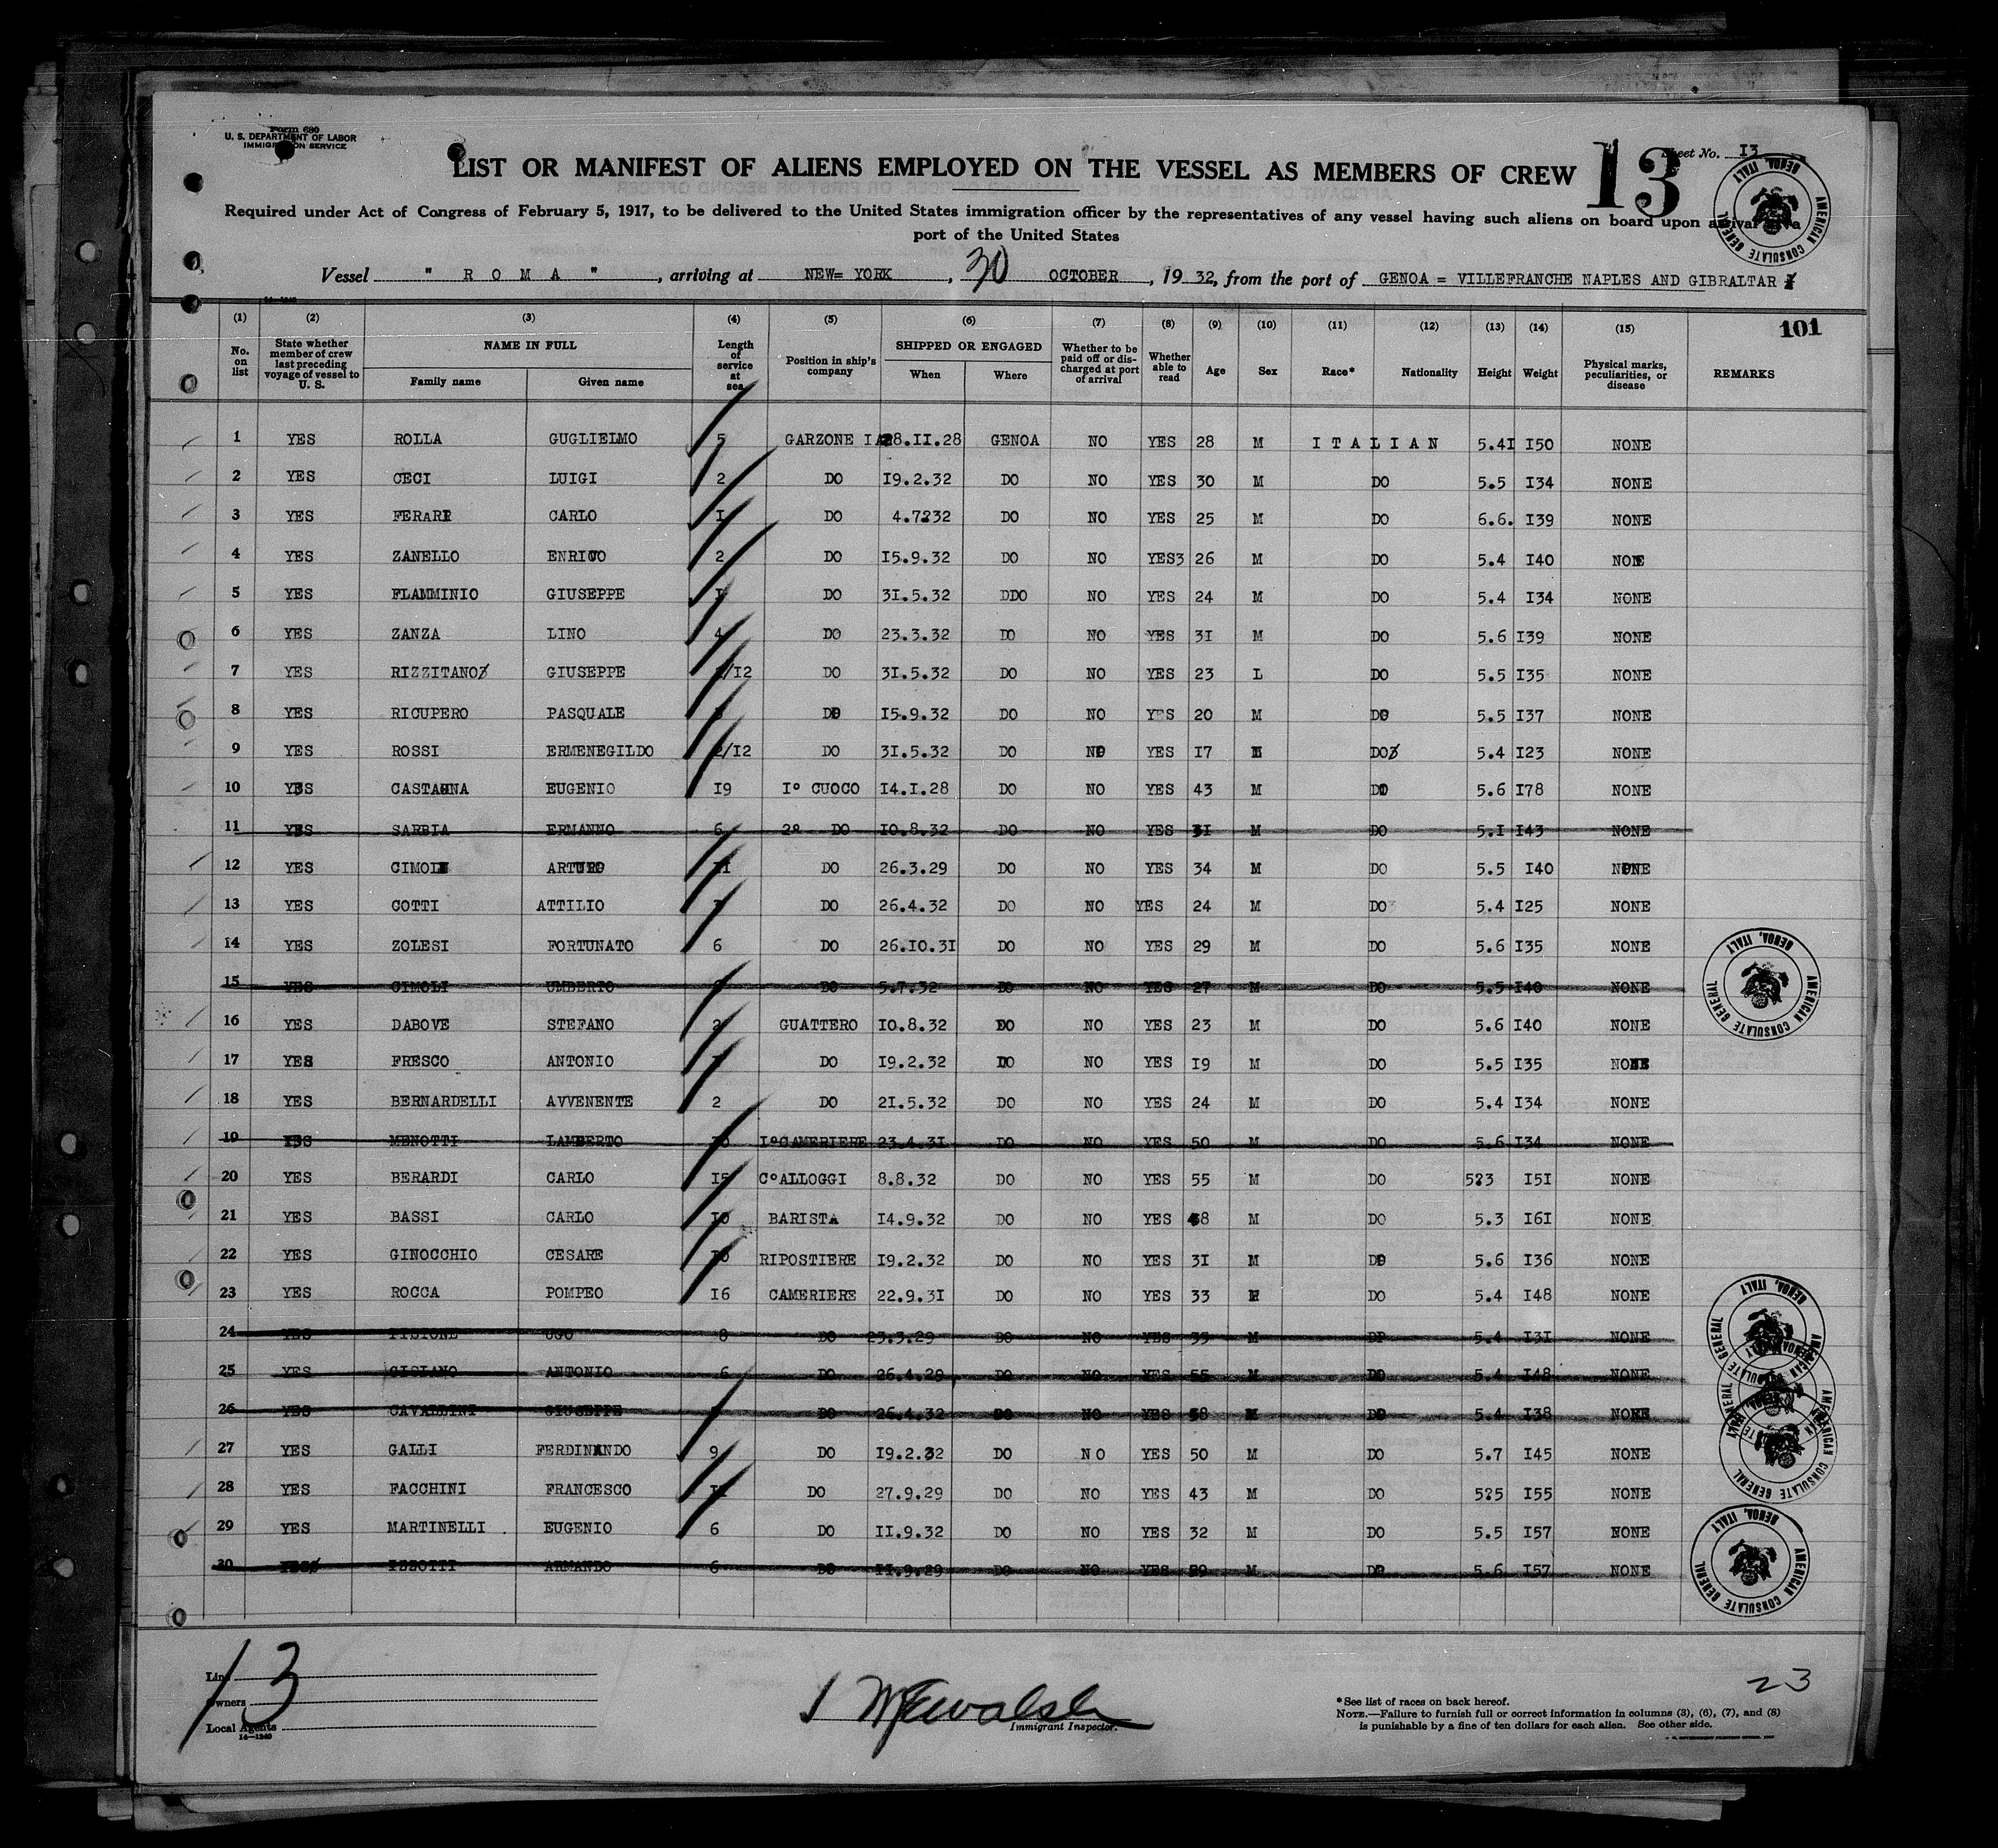 Form 680
U. S. DEPARTMENT OF LABOR
IMMIGRATION SERVICE
LIST OR MANIFEST OF ALIENS EMPLOYED ON THE VESSEL AS MEMBERS OF CREW
13
Sheet No. I3
Required under Act of Congress of February 5, 1917, to be delivered to the United States immigration officer by the representatives of any vessel having such aliens on board upon arrival at a
port of the United States
Vessel " R O M A " , arriving at NEW= YORK , 30 OCTOBER , 19 32, from the port of GENOA = VILLEFRANCHE NAPLES AND GIBRALTAR
(1) (2) (3) (4) (5) (6) (7) (8) (9) (10) (11) (12) (13) (14) (15) 101
No. on list State whether member of crew last preceding voyage of vessel to U. S. NAME IN FULL Family name Given name Length of service at sea Position in ship's company SHIPPED OR ENGAGED When Where Whether to be paid off or discharged at port of arrival Whether able to read Age Sex Race* Nationality Height Weight Physical marks, peculiarities, or disease REMARKS
1 YES ROLLA GUGLIELMO 5 GARZONE IA 28.II.28 GENOA NO YES 28 M I T A L I A N 5.4I I50 NONE
2 YES CECI LUIGI 2 DO I9.2.32 DO NO YES 30 M DO 5.5 I34 NONE
3 YES FERARI CARLO I DO 4.7?32 DO NO YES 25 M DO 6.6. I39 NONE
4 YES ZANELLO ENRICO 2 DO I5.9.32 DO NO YES3 26 M DO 5.4 I40 NONE
5 YES FLAMMINIO GIUSEPPE DO 3I.5.32 DDO NO YES 24 M DO 5.4 I34 NONE
6 YES ZANZA LINO 4 DO 23.3.32 DO NO YES 3I M DO 5.6 I39 NONE
7 YES RIZZITANO GIUSEPPE /I2 DO 3I.5.32 DO NO YES 23 L DO 5.5 I35 NONE
8 YES RICUPERO PASQUALE DO I5.9.32 DO NO YES 20 M DO 5.5 I37 NONE
9 YES ROSSI ERMENEGILDO 2/I2 DO 3I.5.32 DO NO YES I7 M DO 5.4 I23 NONE
10 YES CASTAGNA EUGENIO I9 Iº CUOCO I4.I.28 DO NO YES 43 M DO 5.6 I78 NONE
11 YES SARBIA ERMANNO 6 2º DO I0.8.32 DO NO YES 3I M DO 5.I I43 NONE
12 YES CIMOLI ARTURO II DO 26.3.29 DO NO YES 34 M DO 5.5 I40 NONE
13 YES COTTI ATTILIO DO 26.4.32 DO NO YES 24 M DO 5.4 I25 NONE
14 YES ZOLESI FORTUNATO 6 DO 26.I0.3I DO NO YES 29 M DO 5.6 I35 NONE
15 YES CIMOLI UMBERTO DO 5.7.32 DO NO YES 27 M DO 5.5 I40 NONE
16 YES DABOVE STEFANO 2 GUATTERO I0.8.32 DO NO YES 23 M DO 5.6 I40 NONE
17 YES FRESCO ANTONIO DO I9.2.32 DO NO YES I9 M DO 5.5 I35 NONE
18 YES BERNARDELLI AVVENENTE 2 DO 2I.5.32 DO NO YES 24 M DO 5.4 I34 NONE
19 YES MENOTTI LAMBERTO IºCAMERIERE 23.4.3I DO NO YES 50 M DO 5.6 I34 NONE
20 YES BERARDI CARLO I5 CºALLOGGI 8.8.32 DO NO YES 55 M DO 5?3 I5I NONE
21 YES BASSI CARLO I0 BARISTA I4.9.32 DO NO YES 48 M DO 5.3 I6I NONE
22 YES GINOCCHIO CESARE RIPOSTIERE I9.2.32 DO NO YES 3I M DO 5.6 I36 NONE
23 YES ROCCA POMPEO I6 CAMERIERE 22.9.3I DO NO YES 33 M DO 5.4 I48 NONE
24 YES UGO 8 DO 23.3.29 DO NO YES 35 M DO 5.4 I3I NONE
25 YES CISIANO ANTONIO 6 DO 26.4.29 DO NO YES 55 M DO 5.4 I48 NONE
26 YES CAVALLINI GIUSEPPE DO 26.4.32 DO NO YES 38 M DO 5.4 I38 NONE
27 YES GALLI FERDINANDO 9 DO I9.2.32 DO NO YES 50 M DO 5.7 I45 NONE
28 YES FACCHINI FRANCESCO II DO 27.9.29 DO NO YES 43 M DO 5?5 I55 NONE
29 YES MARTINELLI EUGENIO 6 DO II.9.32 DO NO YES 32 M DO 5.5 I57 NONE
30 YES IZZOTTI ARMANDO 6 DO II.9.29 DO NO YES 29 M DO 5.6 I57 NONE
AMERICAN CONSULATE GENERAL GENOA, ITALY
AMERICAN CONSULATE GENERAL GENOA, ITALY
AMERICAN CONSULATE GENERAL GENOA, ITALY
AMERICAN CONSULATE GENERAL GENOA, ITALY
AMERICAN CONSULATE GENERAL GENOA, ITALY
AMERICAN CONSULATE GENERAL GENOA, ITALY
13
Line
Owners
Local Agents
14—1240
Immigrant Inspector.
23
*See list of races on back hereof.
NOTE.—Failure to furnish full or correct information in columns (3), (6), (7), and (8)
is punishable by a fine of ten dollars for each alien. See other side.